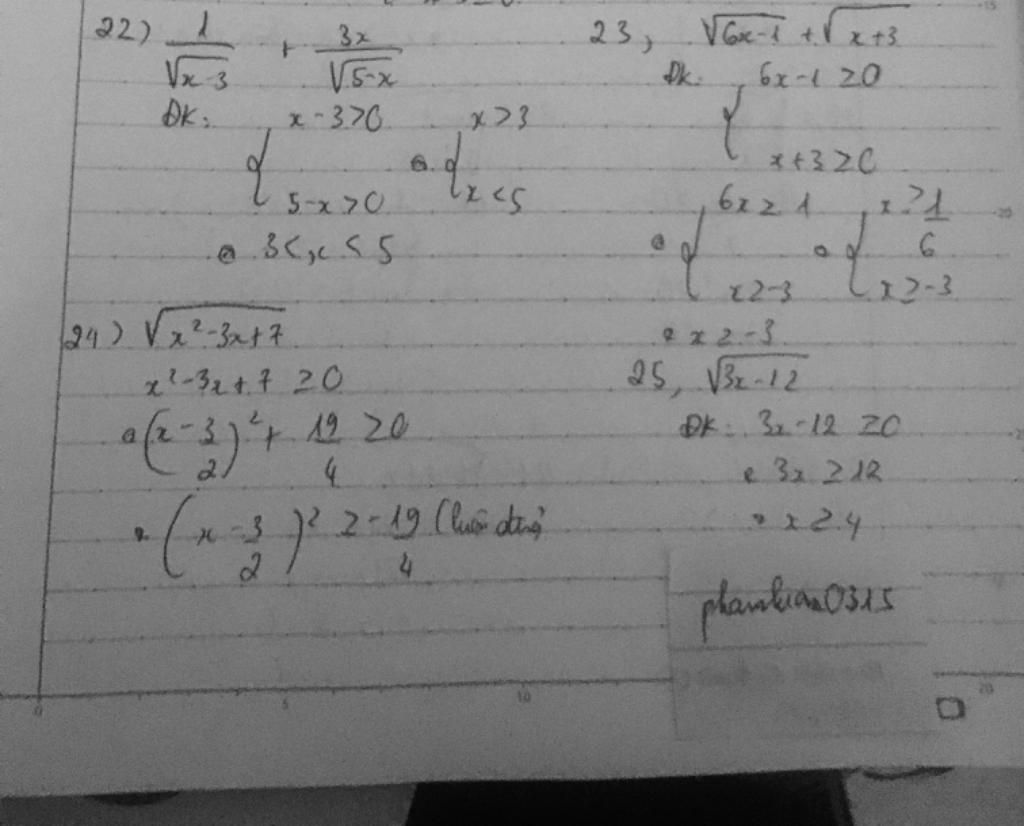 22) 1/√(x-3) + 3x/√(5-x)
ĐK: { x-3>0
5-x>0
{ x>3
x<5
3<x<5
23, √(6x-1) + √(x+3)
ĐK: { 6x-1 ≥0
x+3 ≥0
{ 6x ≥ 1
x ≥ -3
{ x ≥ 1/6
x ≥ -3
x ≥ -3
24) √(x²-3x+7)
x²-3x+7 ≥0
(x - 3/2)² + 19/4 ≥0
(x - 3/2)² ≥ -19/4 (luôn đúng
25, √(3x-12)
ĐK: 3x-12 ≥0
3x ≥ 12
x ≥ 4
0
5
10
15
20
20